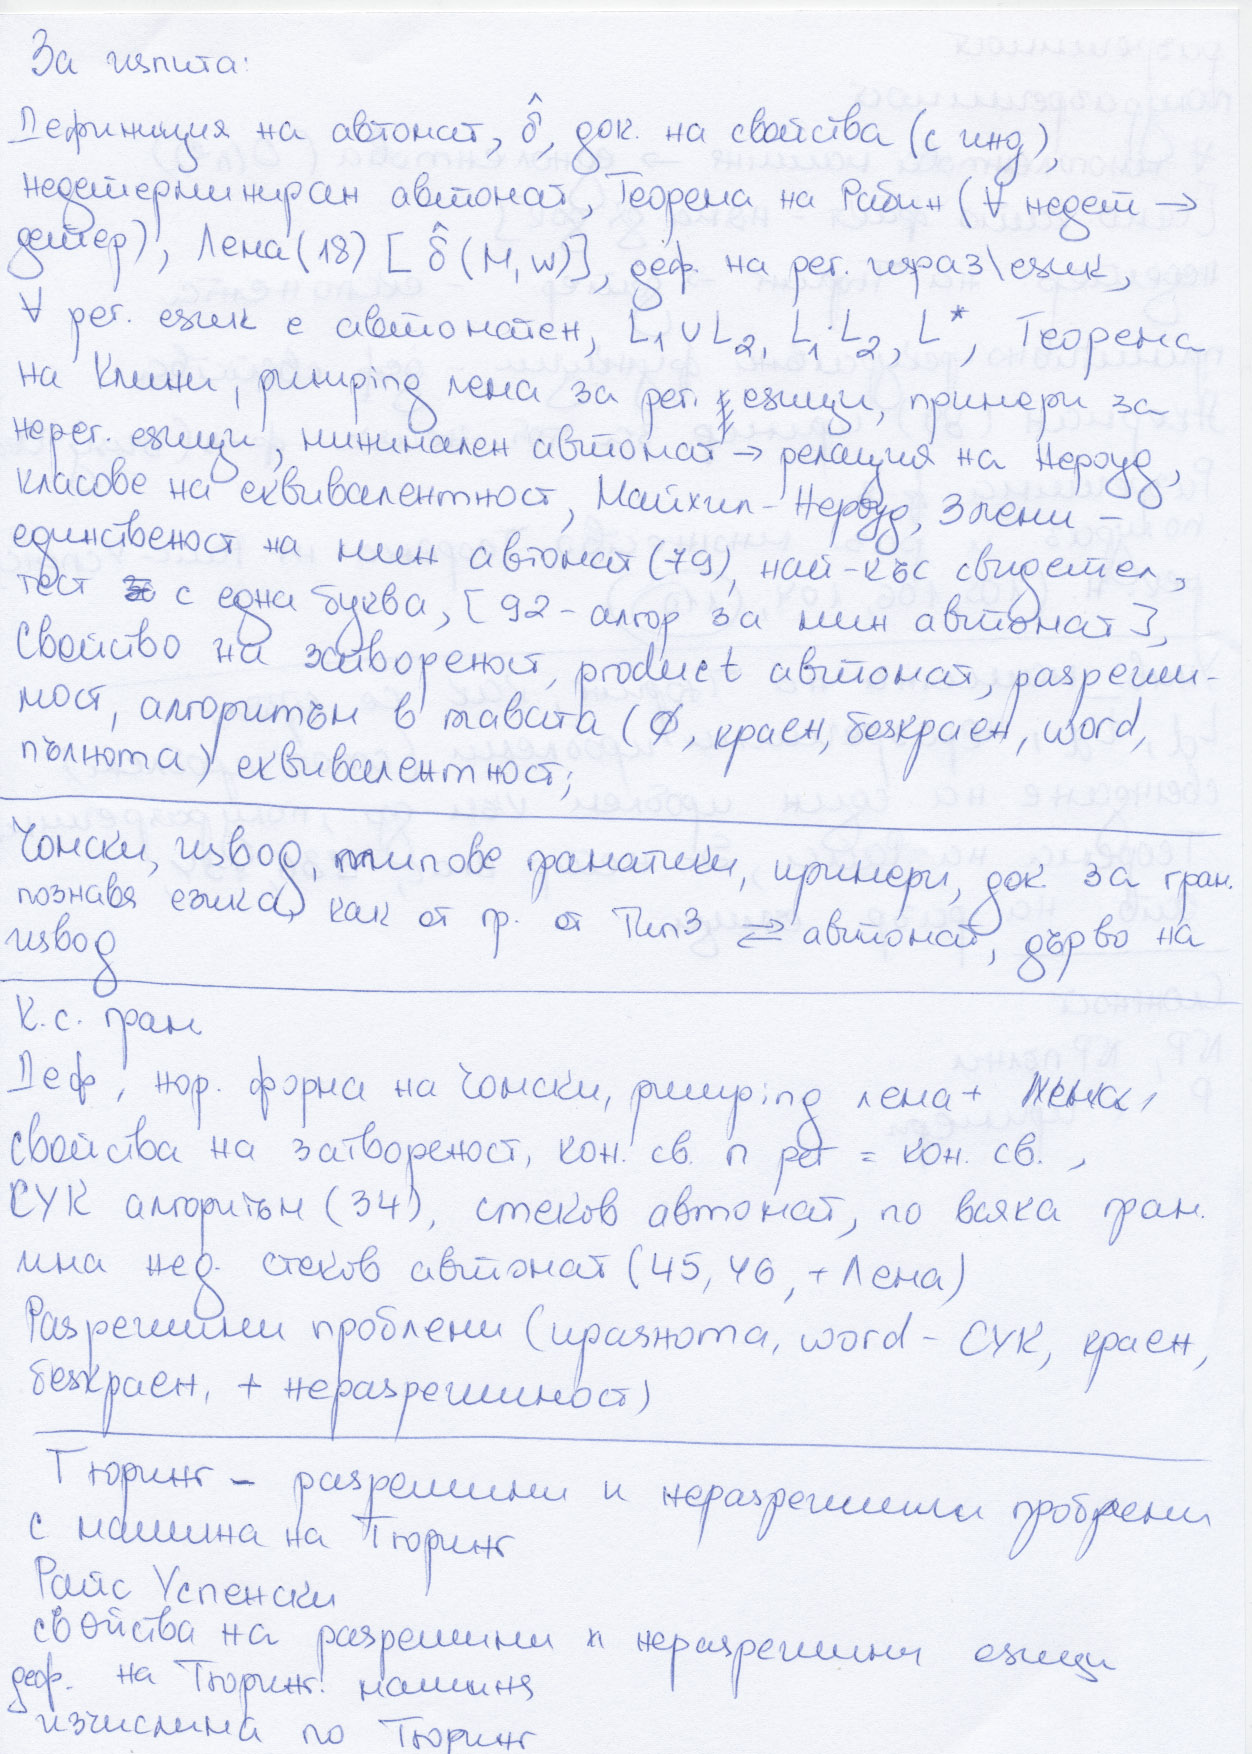 За изпита:
Дефиниция на автомат, δ̂, док. на свойства (с инд),
недетерминиран автомат, Теорема на Рабин (∀ недет →
детер), Лема (18) [ δ̂ (M, w)], деф. на рег. израз\език,
∀ рег. език е автоматен, L₁ ∪ L₂, L₁·L₂, L*, Теорема
на Клини, pumping лема за рег. езици, примери за
нерег. езици, минимален автомат → релация на Нероуд,
класове на еквивалентност, Майхил-Нероуд, 3 леми -
единственост на мин автомат (79), най-къс свидетел,
тест с една буква, [92 - алгор за мин автомат],
Свойство на затвореност, product автомат, разреши-
мост, алгоритъм в главата (∅, краен, безкраен, word,
пълнота) еквивалентност;
Чомски, извод, типове граматики, примери, док. за грам.
познавя езика, как от гр. от Тип3 ⇄ автомат, дърво на
извод
К.с. грам
Деф, нор. форма на Чомски, pumping лема + Лема,
свойства на затвореност, кон. св. ∩ рег = кон. св.,
СУК алгоритъм (34), стеков автомат, по всяка грам.
има нед. стеков автомат (45, 46, + Лема)
Разрешими проблеми (празнота, word - СУК, краен,
безкраен, + неразрешимост)
Тюринг - разрешими и неразрешими проблеми
с машина на Тюринг
Райс Успенски
свойства на разрешими и неразрешими езици
деф. на Тюринг. машина
изчислима по Тюринг